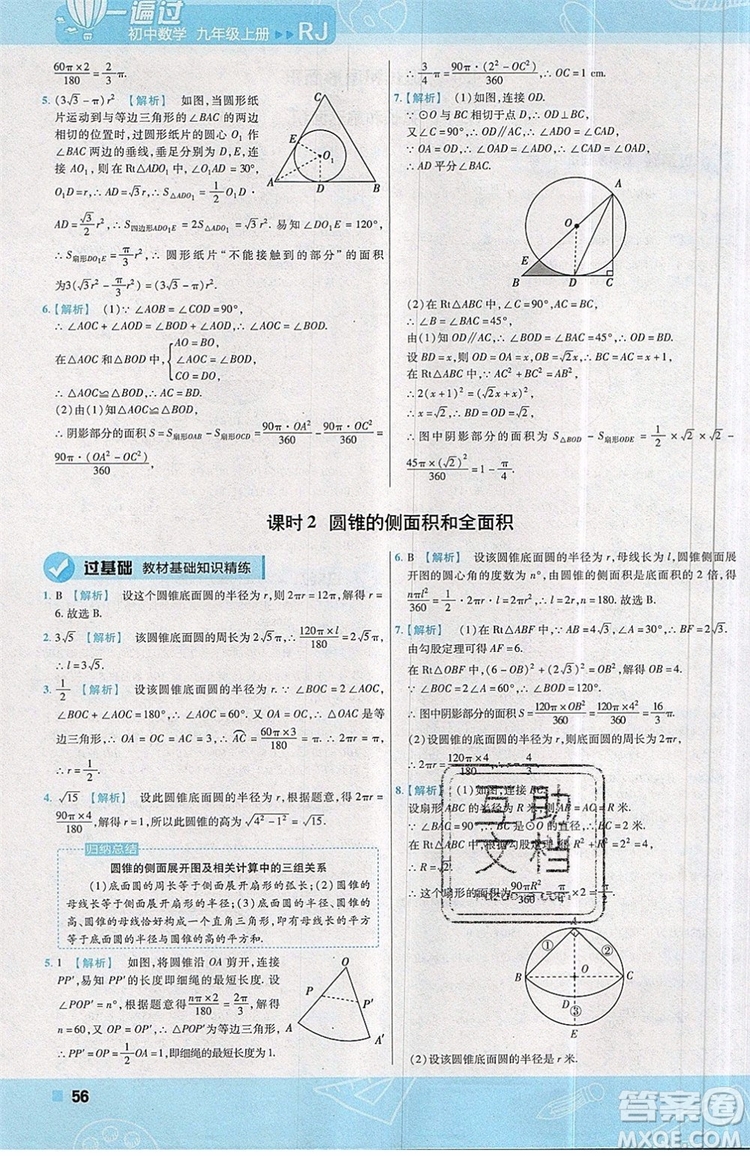 一遍过
初中数学 九年级上册 ▶▶ RJ
60π×2/180 = 2π/3.
5. (3√3 - π)r² 【解析】 如图,当圆形纸
片运动到与等边三角形的∠BAC 的两边
相切的位置时,过圆形纸片的圆心 O₁ 作
∠BAC 两边的垂线,垂足分别为 D,E,连
接 AO₁,则在 Rt△ADO₁ 中,∠O₁AD = 30°,
O₁D = r, AD = √3r. ∴ S△ADO₁ = 1/2 O₁D ·
AD = √3/2 r², ∴ S四边形ADO₁E = 2S△ADO₁ = √3r². 易知∠DO₁E = 120°,
∴ S扇形DO₁E = π/3 r², ∴ 圆形纸片“不能接触到的部分”的面积
为3(√3r² - π/3 r²) = (3√3 - π)r².
C
E
O₁
A
D
B
6. 【解析】 (1)∵ ∠AOB = ∠COD = 90°,
∴ ∠AOC + ∠AOD = ∠BOD + ∠AOD,
∴ ∠AOC = ∠BOD.
在△AOC 和△BOD 中, { AO = BO, ∠AOC = ∠BOD, CO = DO,
∴ △AOC≌△BOD, ∴ AC = BD.
(2)由(1)知△AOC≌△BOD,
∴ 阴影部分的面积 S = S扇形OAB - S扇形OCD = 90π·OA²/360 - 90π·OC²/360 =
90π·(OA² - OC²)/360,
∴ 3/4 π = 90π·(2² - OC²)/360, ∴ OC = 1 cm.
7. 【解析】 (1)如图,连接 OD.
∵ ⊙O 与 BC 相切于点 D, ∴ OD⊥BC,
又∠C = 90°, ∴ OD∥AC, ∴ ∠CAD = ∠ODA.
∵ OA = OD, ∴ ∠OAD = ∠ODA, ∴ ∠OAD = ∠CAD,
∴ AD 平分∠BAC.
A
O
E
B
D
C
(2)在 Rt△ABC 中,∠C = 90°,AC = BC,
∴ ∠B = ∠BAC = 45°,
由(1)知 OD⊥BC, ∴ ∠BOD = 45°,
设 BD = x,则 OD = OA = x,OB = √2x, ∴ BC = AC = x + 1.
在 Rt△ABC 中,∠C = 90°, ∴ AC² + BC² = AB²,
∴ 2(x + 1)² = (√2x + x)²,
∴ x = √2, ∴ BD = OD = √2,
∴ 图中阴影部分的面积 = S△BOD - S扇形ODE = 1/2 × √2 × √2 -
45π×(√2)²/360 = 1 - π/4.
课时2 圆锥的侧面积和全面积
过基础 教材基础知识精练
1. B 【解析】 设这个圆锥底面圆的半径为 r,则 2πr = 12π,解得 r =
6. 故选 B.
2. 3√5 【解析】 该圆锥底面圆的周长为 2√5π, ∴ 120π×l/180 = 2√5π,
∴ l = 3√5.
3. 1/2 【解析】 设该圆锥底面圆的半径为 r. ∵ ∠BOC = 2∠AOC,
∠BOC + ∠AOC = 180°, ∴ ∠AOC = 60°. 又 OA = OC, ∴ △OAC 是等
边三角形, ∴ OA = 3, ∴ AC = 60π×3/180 = π. ∴ 2πr = π,
∴ r = 1/2.
4. √15 【解析】 设此圆锥底面圆的半径为 r,根据题意,得 2πr =
90π×4/180,解得 r = 1,所以此圆锥的高为 √(4² - 1²) = √15.
归纳总结
圆锥的侧面展开图及相关计算中的三组关系
(1)底面圆的周长等于侧面展开扇形的弧长;(2)圆锥的
母线长等于侧面展开扇形的半径;(3)圆锥的底面半径、高、
母线长恰好构成一个直角三角形,即有母线长的平方
等于底面圆的半径与圆锥的高的平方和.
5. 1 【解析】 如图,将圆锥沿 OA 剪开,连接
PP′,易知 PP′ 的长度即细绳的最短长度. 设
∠POP′ = n°,根据题意,得 nπ×2/180 = 2π/3,解得
n = 60,又 OP = OP′, ∴ △POP′ 为等边三角形,
∴ PP′ = OP = 1/2 OA = 1,即细绳的最短长度为1.
P
P′
A
A′
6. B 【解析】 设该圆锥底面圆的半径为 r,母线长为 l,圆锥侧面展
开图的圆心角的度数为 n°,由圆锥的侧面积是底面积的 2 倍,得
nπl²/360 = 2·πr²,解得 n = 180. 故选 B.
7. 【解析】 (1)在 Rt△ABF 中,
由勾股定理可得 AF = 6.
在 Rt△OBF 中,
∴ 图中阴影部分的面积 S = 120π×OB²/360 = 120π×4²/360 = 16π/3.
(2)设圆锥的底面圆的半径为 r,则底面圆的周长为 2πr,
8. 【解析】 (1)如图,连接 BC.
∴ 这个扇形的面积为 90πR²/360 = π/4
互助
文档
A
①
②
B
O
C
E
③
(2)设该圆锥底面圆的半径是 r 米.
56
答案圈
MXQE.COM